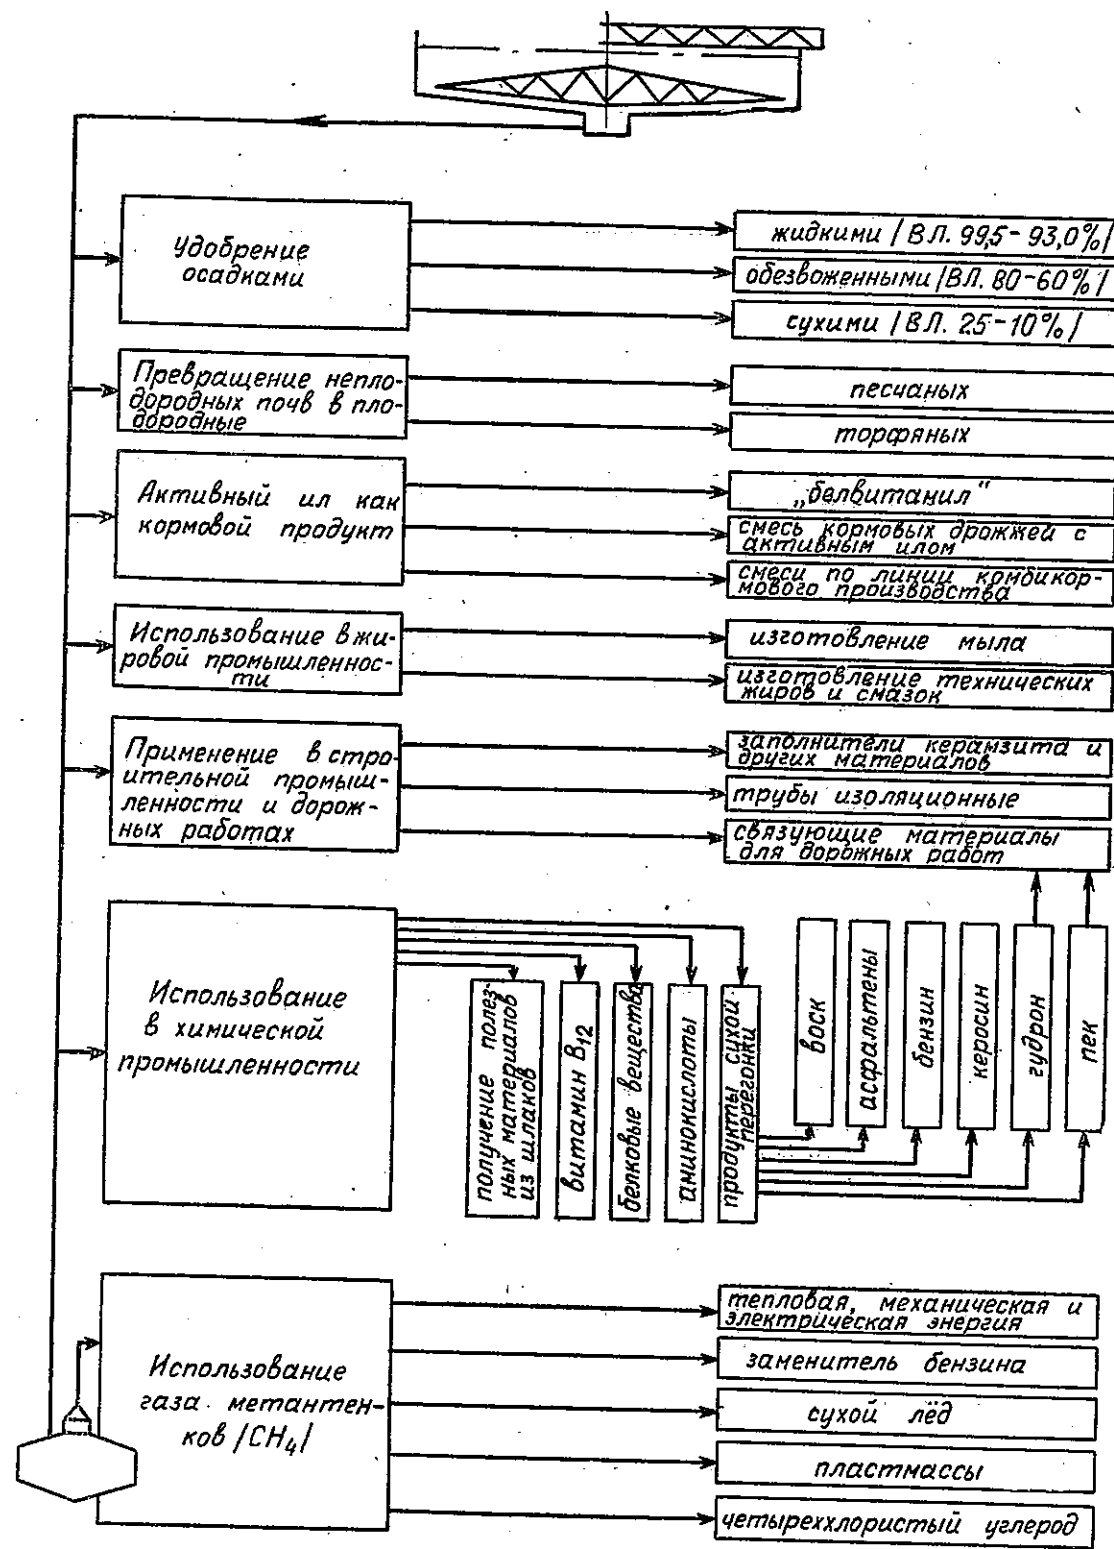 Удобрение
осадками
жидкими /ВЛ. 99,5-93,0%/
обезвоженными /ВЛ. 80-60%/
сухими /ВЛ. 25-10%/
Превращение непло-
дородных почв в пло-
дородные
песчаных
торфяных
Активный ил как
кормовой продукт
„белвитамил"
смесь кормовых дрожжей с
активным илом
смеси по линии комбикор-
мового производства
Использование в жи-
ровой промышленнос-
ти
изготовление мыла
изготовление технических
жиров и смазок
Применение в стро-
ительной промыш-
ленности и дорож-
ных работах
заполнители керамзита и
других материалов
трубы изоляционные
связующие материалы
для дорожных работ
Использование
в химической
промышленности
получение полез-
ных материалов
из шлаков
витамин В12
белковые вещества
аминокислоты
продукты сухой
перегонки
воск
асфальтены
бензин
керосин
гудрон
пек
Использование
газа метантен-
ков /CH4/
тепловая, механическая и
электрическая энергия
заменитель бензина
сухой лёд
пластмассы
четыреххлористый углерод